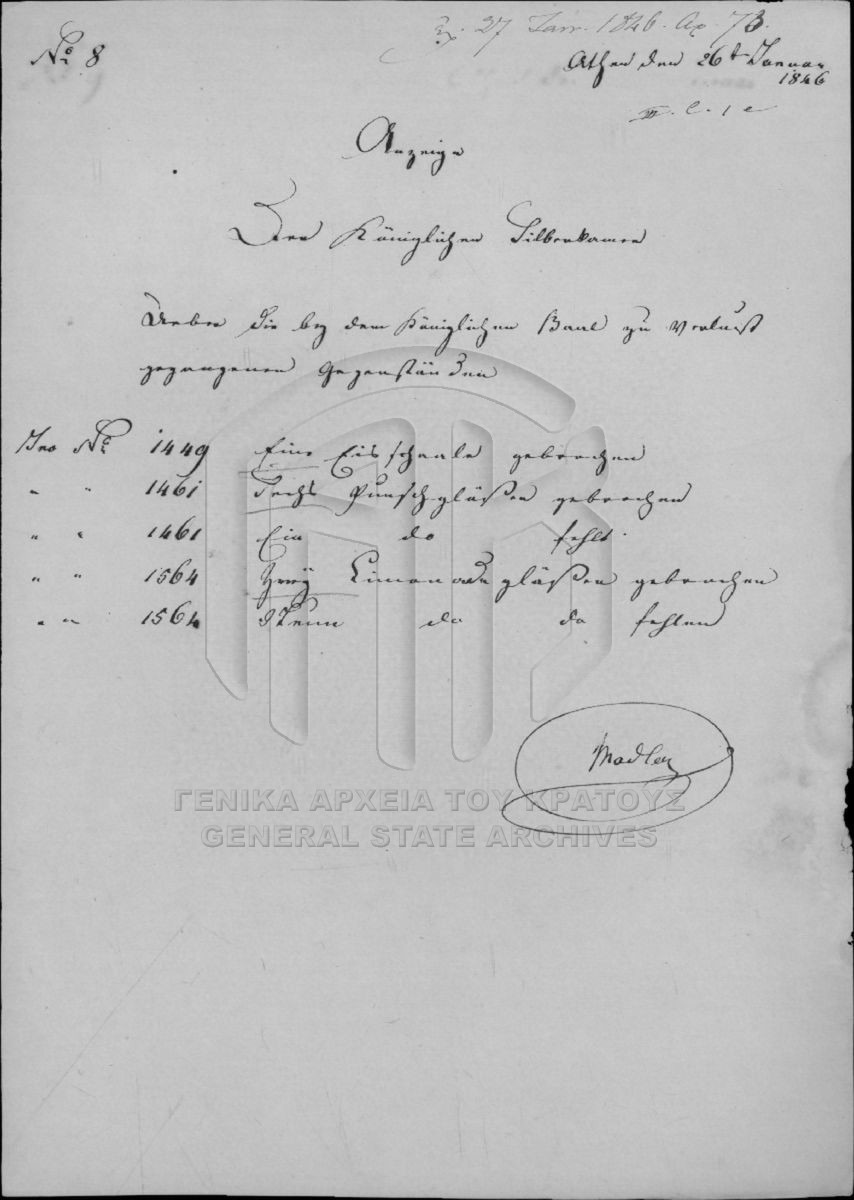 27 Jan. 1846. 73.
No 8
Athen den 26t Januar
1846
III. C. 1 e
Anzeige
Der Königlichen Silberkamer
Ueber die bey dem Königlichen Baal zu Verlurst
gegangenen Gegenständen
Inv No 1449 Eine Eisschaale gebrochen
" " 1461 Sechs Punschgläßer gebrochen
" " 1461 Ein do fehlt
" " 1564 Zwey Limonadegläßer gebrochen
" " 1564 Neun do do fehlen
Madler
ΓΕΝΙΚΑ ΑΡΧΕΙΑ ΤΟΥ ΚΡΑΤΟΥΣ
GENERAL STATE ARCHIVES